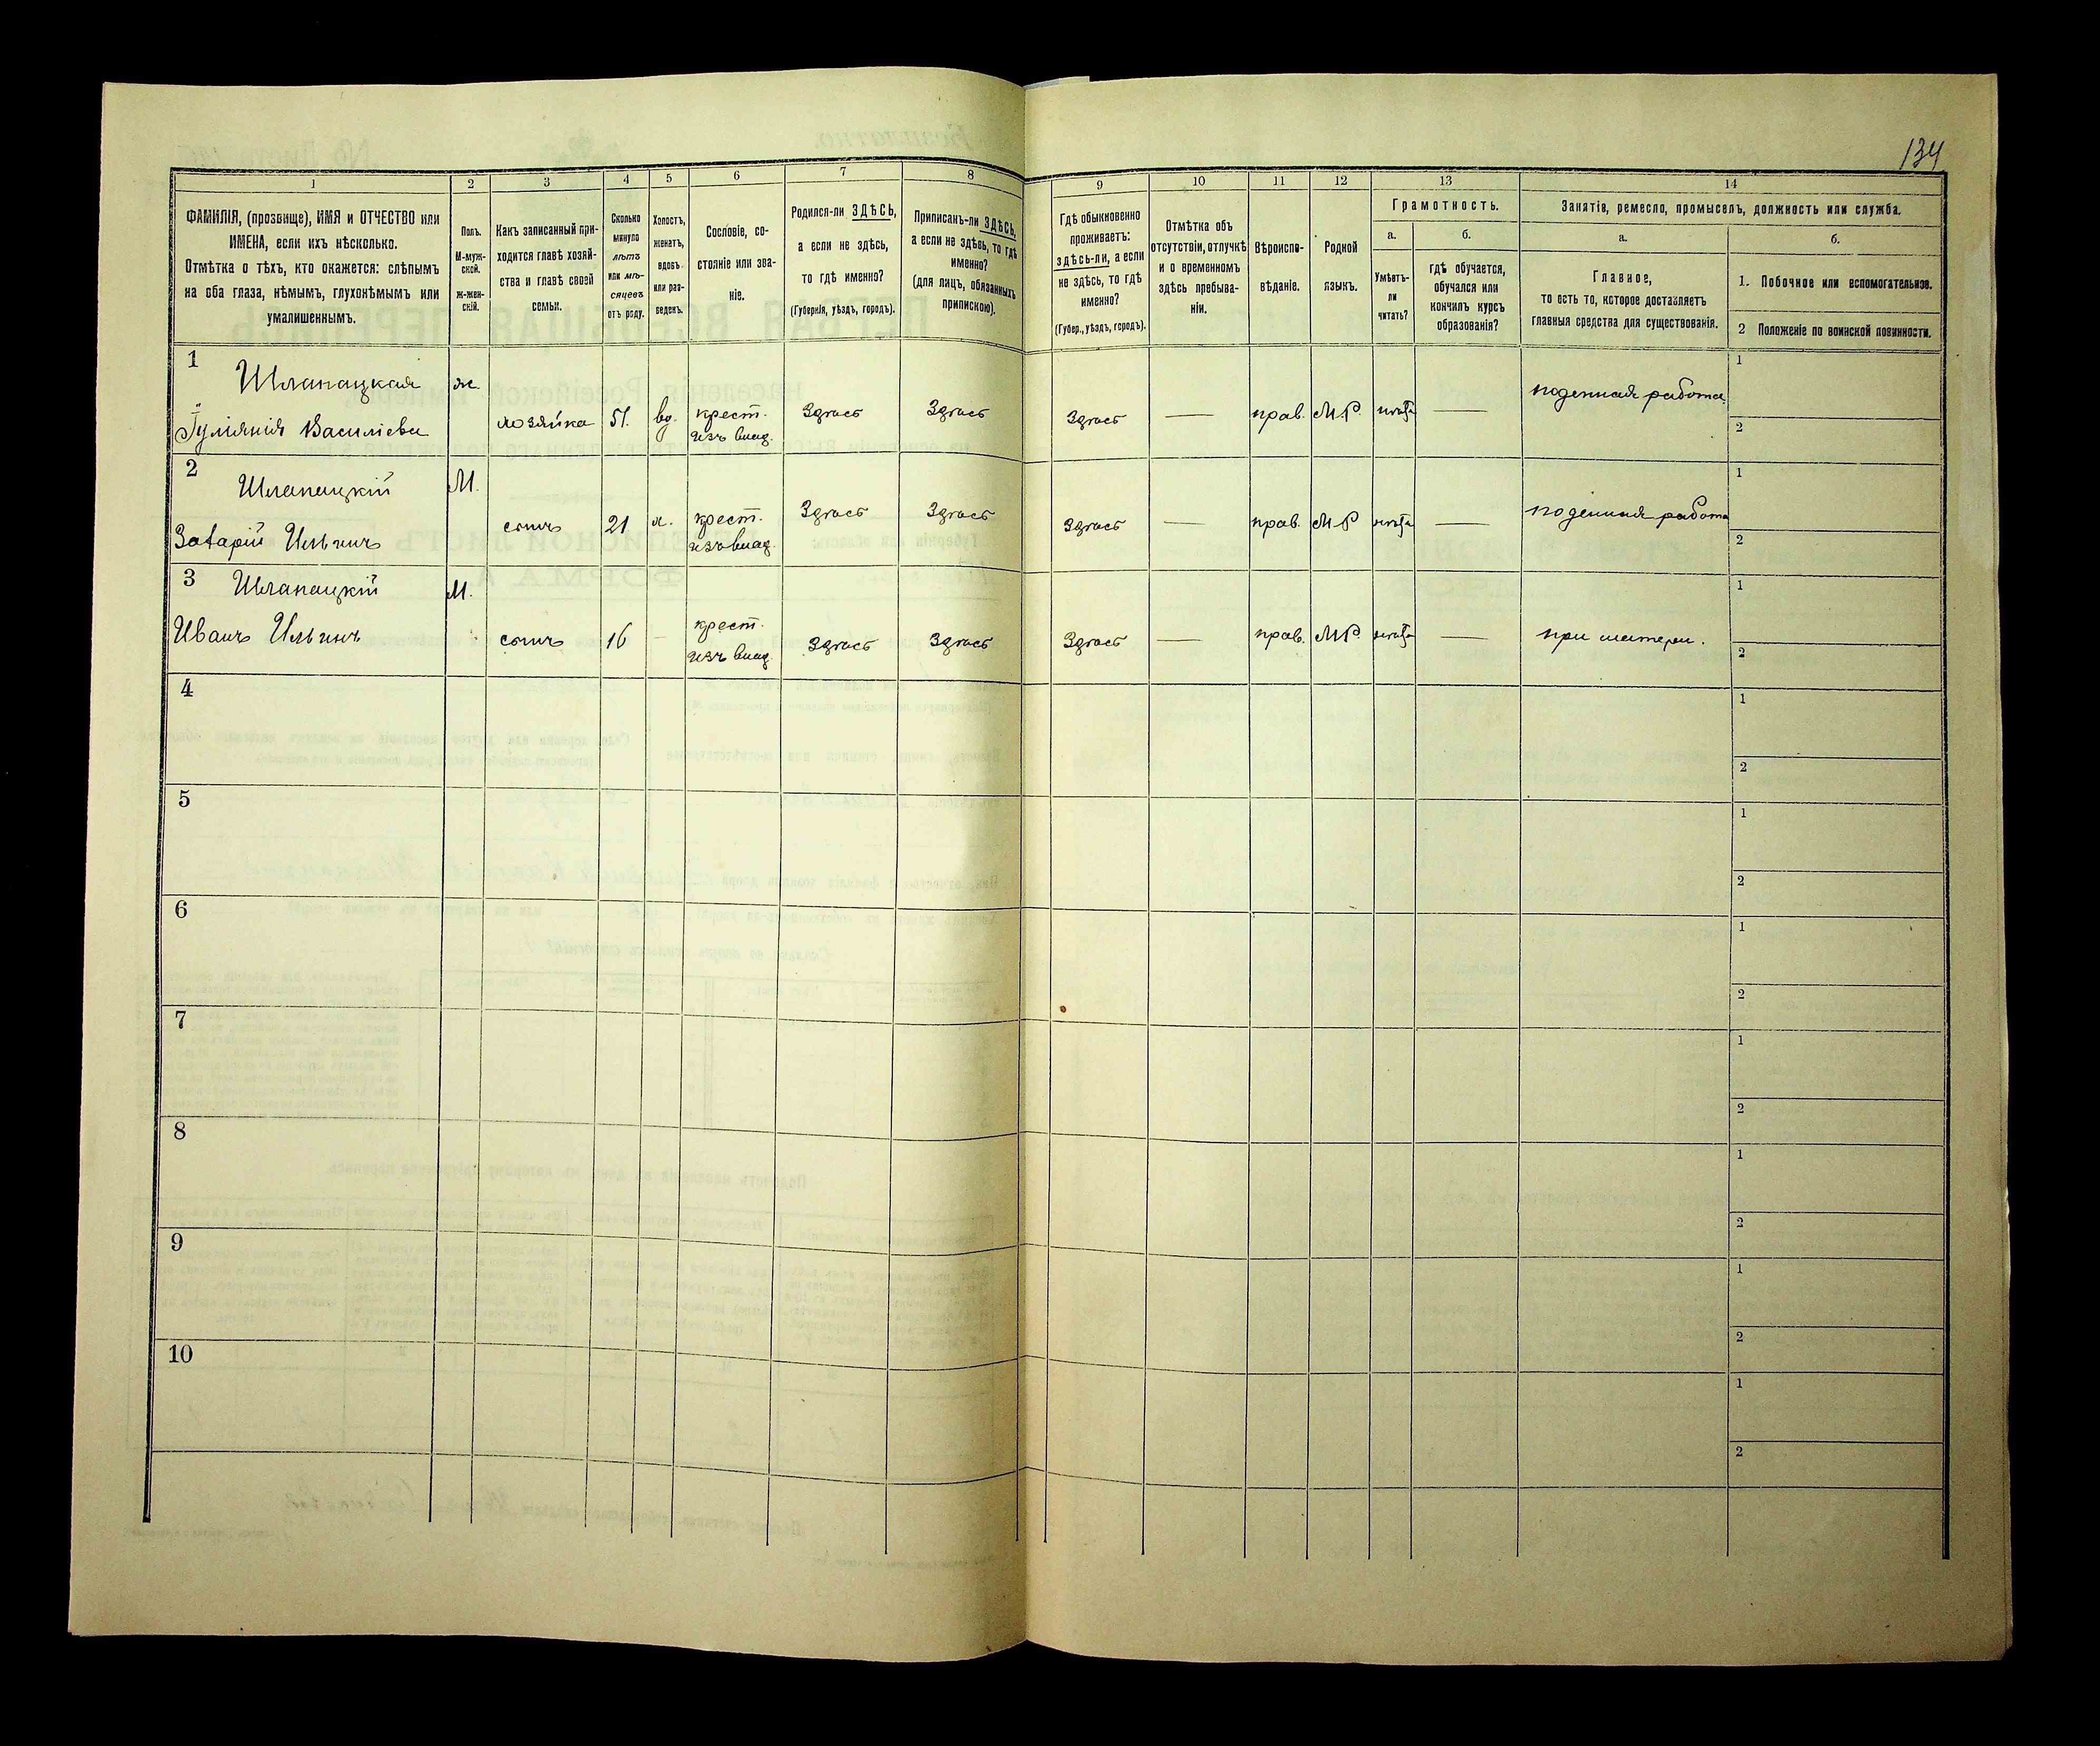 134
1
2
3
4
5
6
7
8
9
10
11
12
13
14
ФАМИЛІЯ, (прозвище), ИМЯ и ОТЧЕСТВО или
ИМЕНА, если ихъ нѣсколько.
Отмѣтка о тѣхъ, кто окажется: слѣпымъ
на оба глаза, нѣмымъ, глухонѣмымъ или
умалишеннымъ.
Полъ.
М-муж-
ской.
Ж-жен-
скій.
Какъ записанный при-
ходится главѣ хозяй-
ства и главѣ своей
семьи.
Сколько
минуло
лѣтъ
или мѣ-
сяцевъ
отъ роду.
Холостъ,
женатъ,
вдовъ
или раз-
веденъ.
Сословіе, со-
стояніе или зва-
ніе.
Родился-ли ЗДѢСЬ,
а если не здѣсь,
то гдѣ именно?
(Губернія, уѣздъ, городъ).
Приписанъ-ли ЗДѢСЬ,
а если не здѣсь, то гдѣ
именно?
(для лицъ, обязанныхъ
припискою).
Гдѣ обыкновенно
проживаетъ:
здѣсь-ли, а если
не здѣсь, то гдѣ
именно?
(Губер., уѣздъ, городъ).
Отмѣтка объ
отсутствіи, отлучкѣ
и о временномъ
здѣсь пребыва-
ніи.
Вѣроиспо-
вѣданіе.
Родной
языкъ.
Грамотность.
а.
Умѣетъ-
ли
читать?
б.
гдѣ обучается,
обучался или
кончилъ курсъ
образованія?
Занятія, ремесло, промыселъ, должность или служба.
а.
Главное,
то есть то, которое доставляетъ
главныя средства для существованія.
б.
1. Побочное или вспомогательное.
2 Положеніе по воинской повинности.
1
Шлапацкая ж.
Іуліянія Василіева хозяйка 51. вд. крест. Здѣсь Здѣсь Здѣсь — прав. М.Р. нѣтъ — поденная работа
изъ влад.
1
2
2
Шлапацкій М.
Захарій Ильинъ сынъ 21 х. крест. Здѣсь Здѣсь Здѣсь — прав. М.Р. нѣтъ — поденная работа
изъ влад.
1
2
3
Шлапацкій М.
Иванъ Ильинъ сынъ 16 — крест. Здѣсь Здѣсь Здѣсь — прав. М.Р. нѣтъ — при матери.
изъ влад.
1
2
4
1
2
5
1
2
6
1
2
7
1
2
8
1
2
9
1
2
10
1
2